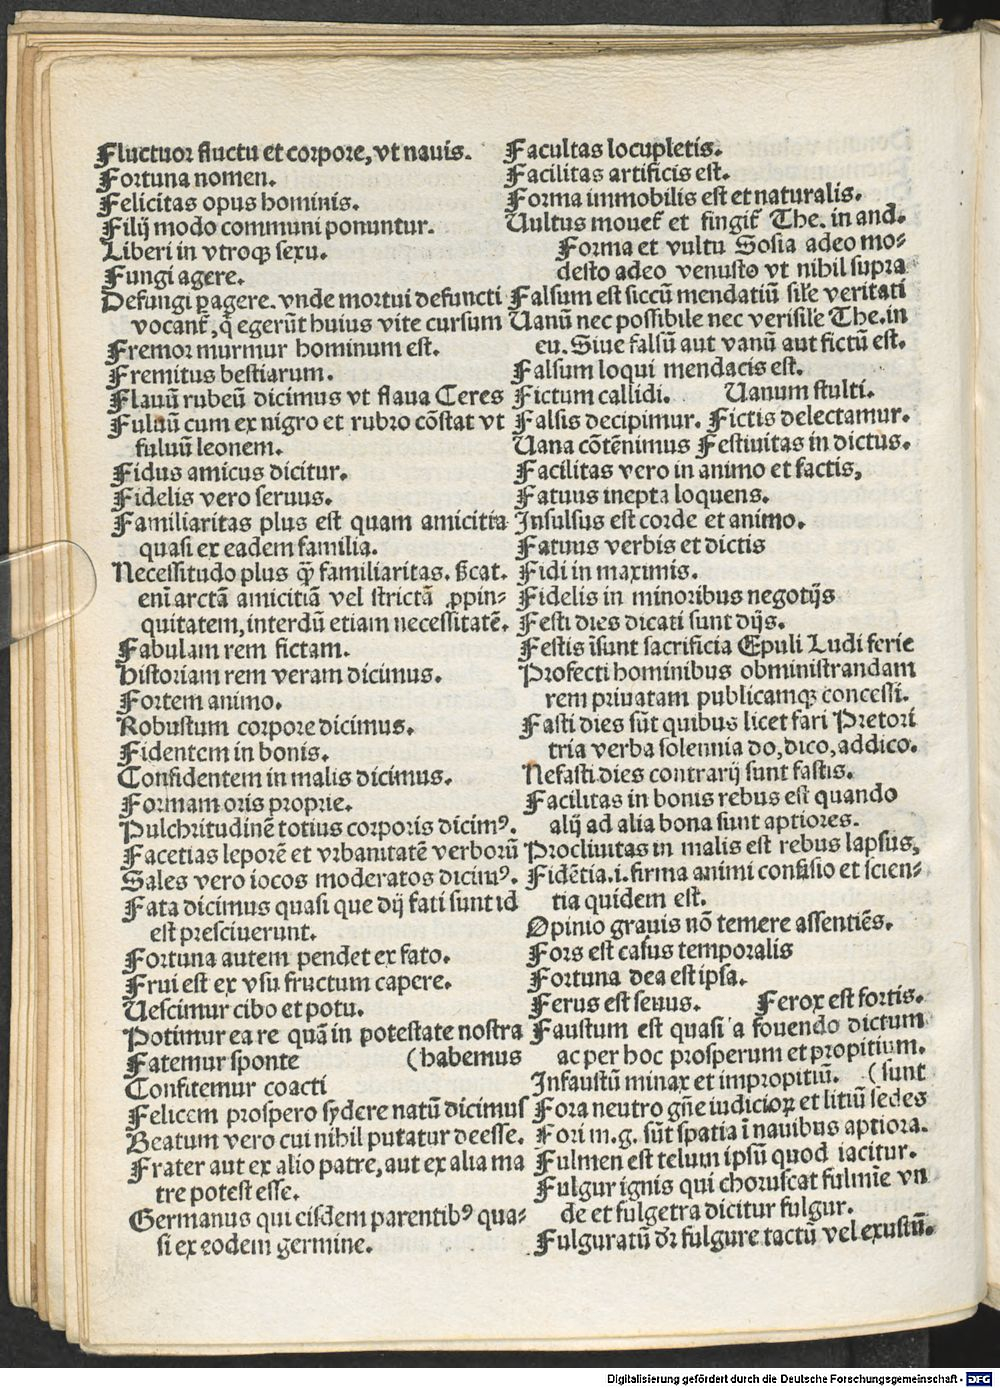 Fluctuor fluctu et corpore, vt nauis.
Fortuna nomen.
Felicitas opus hominis.
Filij modo communi ponuntur.
Liberi in vtroqꝫ sexu.
Fungi agere.
Defungi ꝑagere. vnde mortui defuncti
vocant᷑, q̇ egerūt huius vite cursum
Fremor murmur hominum est.
Fremitus bestiarum.
Flauū rubeū dicimus vt flaua Ceres
Fuluū cum ex nigro et rubro cōstat vt
fuluū leonem.
Fidus amicus dicitur.
Fidelis vero seruus.
Familiaritas plus est quam amicitia
quasi ex eadem familia.
Necessitudo plus q̄ꝫ familiaritas. s̄cat.
eni arctā amicitiā vel strictā ꝓpin⸗
quitatem, interdū etiam necessitatē.
Fabulam rem fictam.
Historiam rem veram dicimus.
Fortem animo.
Robustum corpore dicimus.
Fidentem in bonis.
Confidentem in malis dicimus.
Formam oris proprie.
Pulchritudinē totius corporis dicimꝰ.
Facetias leporē et vrbanitatē verborū
Sales vero iocos moderatos dicimꝰ.
Fata dicimus quasi que dij fati sunt id
est presciuerunt.
Fortuna autem pendet ex fato.
Frui est ex vsu fructum capere.
Uescimur cibo et potu.
Potimur ea re quā in potestate nostra
Fatemur sponte (habemus
Confitemur coacti
Felicem prospero sydere natū dicimus
Beatum vero cui nihil putatur deesse.
Frater aut ex alio patre, aut ex alia ma
tre potest esse.
Germanus qui eisdem parentibꝰ qua⸗
si ex eodem germine.
Facultas locupletis.
Facilitas artificis est.
Forma immobilis est et naturalis.
Uultus mouet᷑ et fingit᷑ The. in and.
Forma et vultu Sosia adeo mo⸗
desto adeo venusto vt nihil supra
Falsum est siccū mendatiū sil'e veritati
Uanū nec possibile nec verisil'e The. in
eu. Siue falsū aut vanū aut fictū est.
Falsum loqui mendacis est.
Fictum callidi. Uanum stulti.
Falsis decipimur. Fictis delectamur.
Uana cōtēnimus Festiuitas in dictus.
Facilitas vero in animo et factis,
Fatuus inepta loquens.
Insulsus est corde et animo.
Fatuus verbis et dictis
Fidi in maximis.
Fidelis in minoribus negotijs
Festi dies dicati sunt dijs.
Festis īsunt sacrificia Epuli Ludi ferie
Profecti hominibus obministrandam
rem priuatam publicamqꝫ concessi.
Fasti dies sūt quibus licet fari Pretori
tria verba solennia do, dico, addico.
Nefasti dies contrarij sunt fastis.
Facilitas in bonis rebus est quando
alij ad alia bona sunt aptiores.
Procliuitas in malis est rebus lapsus,
Fidētia .i. firma animi confisio et scien⸗
tia quidem est.
Opinio grauis nō temere assentiēs.
Fors est casus temporalis
Fortuna dea est ipsa.
Ferus est seuus. Ferox est fortis.
Faustum est quasi a fouendo dictum
ac per hoc prosperum et propitium.
Infaustū minax et impropitiū. (sunt
Fora neutro gn̄e iudicioꝝ et litiū sedes
Fori m.g. sūt spatia ī nauibus aptiora.
Fulmen est telum ipsū quod iacitur.
Fulgur ignis qui choruscat fulmīe vn
de et fulgetra dicitur fulgur.
Fulguratū dr̄ fulgure tactū vel exustū.
Digitalisierung gefördert durch die Deutsche Forschungsgemeinschaft - DFG